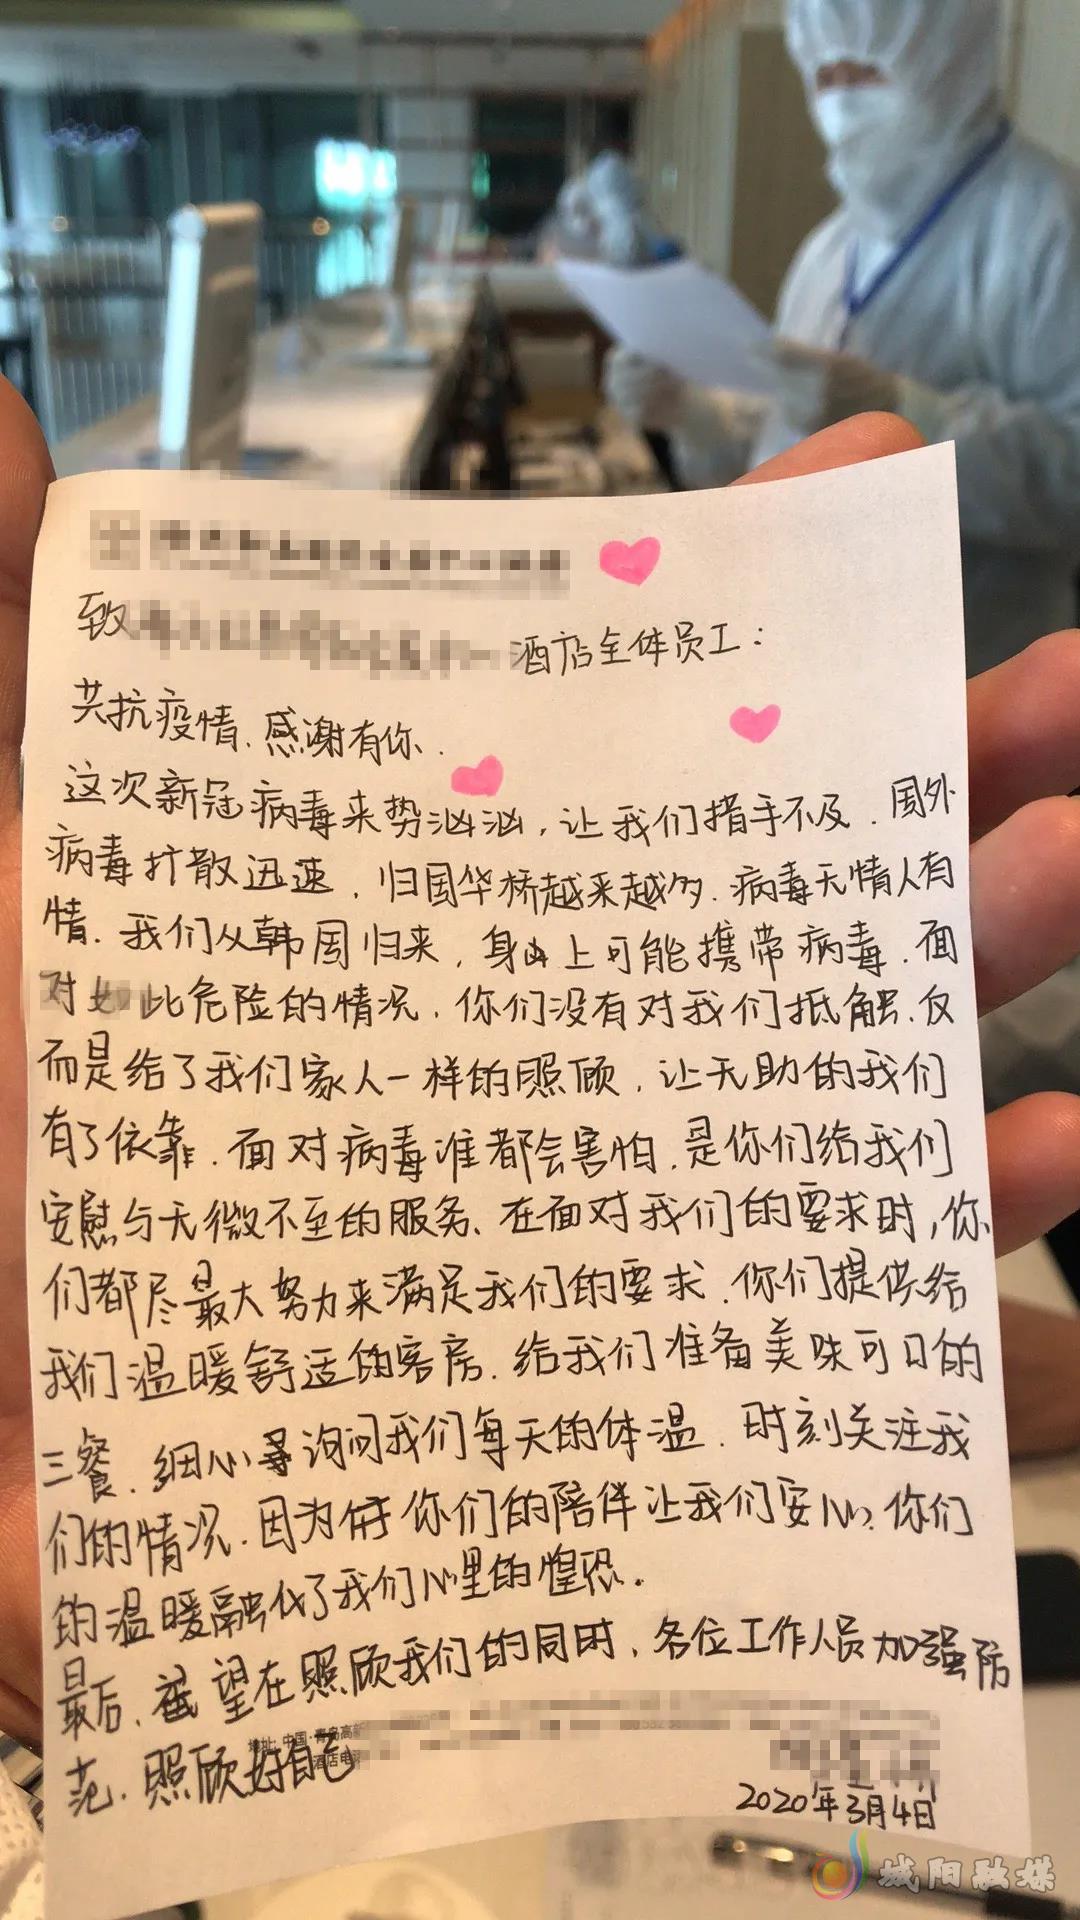 致 酒店全体员工：
共抗疫情.感谢有你.
这次新冠病毒来势汹汹,让我们措手不及.国外
病毒扩散迅速,归国华桥越来越多.病毒无情人有
情.我们从韩国归来,身上可能携带病毒.面
对如此危险的情况,你们没有对我们抵触.反
而是给了我们家人一样的照顾,让无助的我们
有了依靠.面对病毒谁都会害怕.是你们给我们
安慰与无微不至的服务.在面对我们的要求时,你
们都尽最大努力来满足我们的要求.你们提供给
我们温暖舒适的客房.给我们准备美味可口的
三餐.细心寻询问我们每天的体温.时刻关注我
们的情况.因为你们的陪伴让我们安心.你们
的温暖融化了我们心里的惶恐.
最后,希望在照顾我们的同时,各位工作人员加强防
范.照顾好自己
地址:中国·青岛高新
酒店电
2020年3月4日
城阳融媒